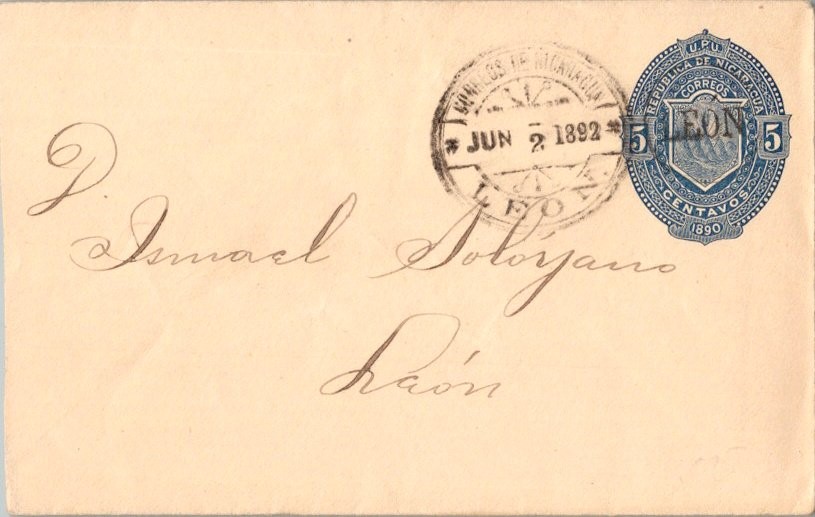 U.P.U.
REPUBLICA DE NICARAGUA
CORREOS
5 LEON 5
CENTAVOS
1890
CORREOS DE NICARAGUA
JUN 2 1892
LEON
D.
Ismael Solórzano
León